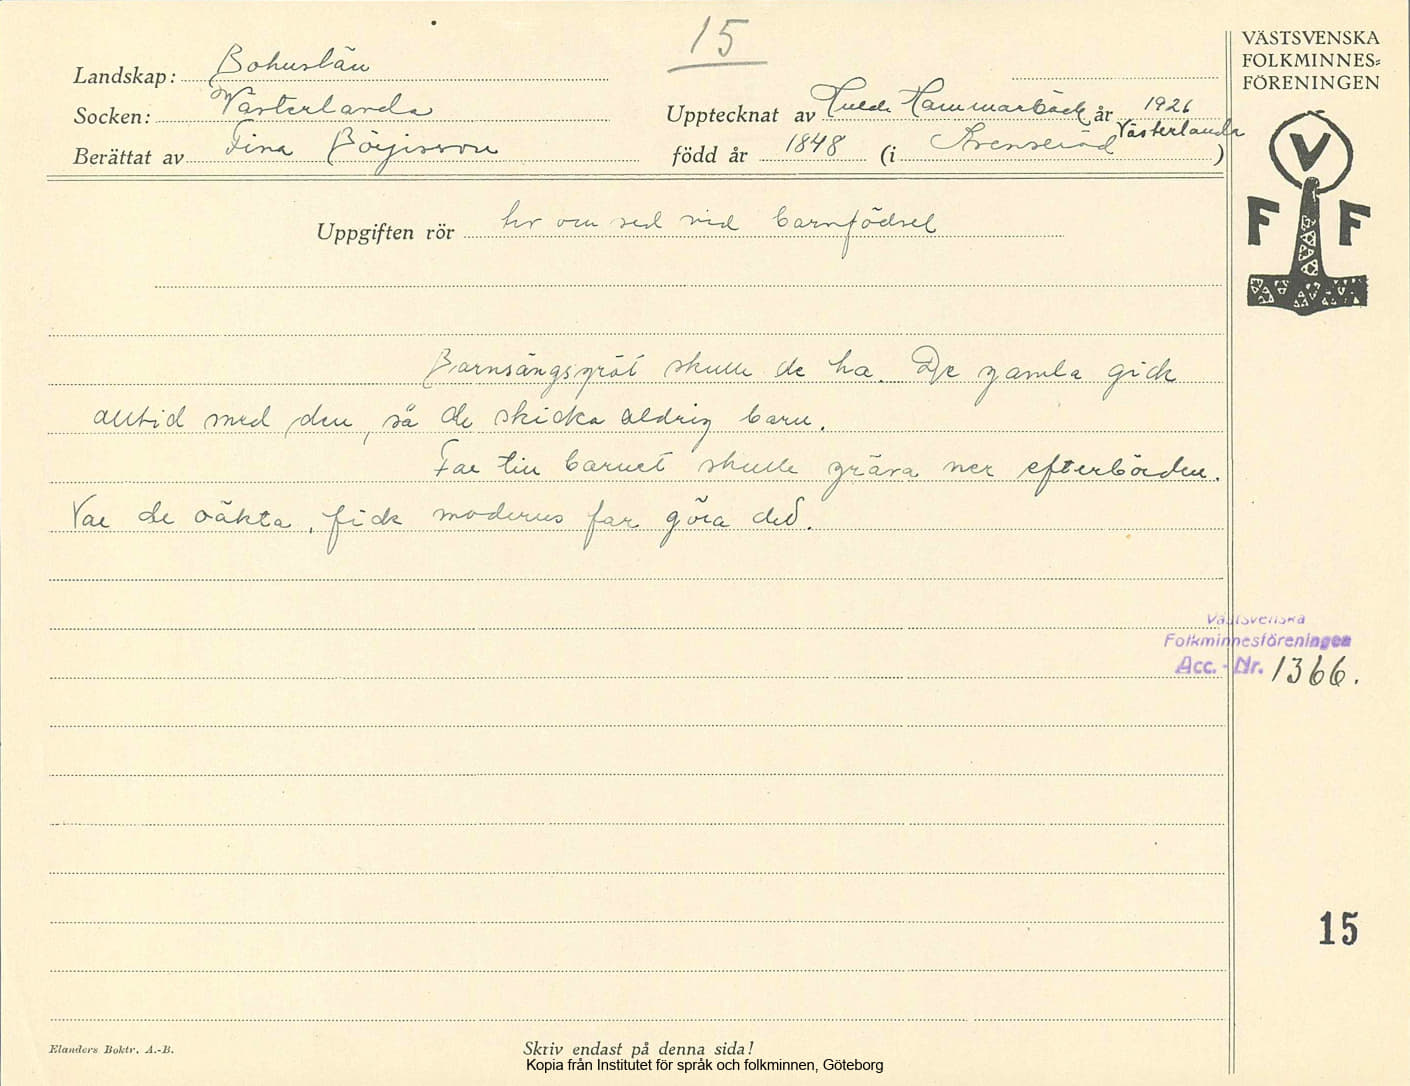 15
VÄSTSVENSKA
FOLKMINNES=
FÖRENINGEN
Landskap: Bohuslän
Socken: Västerlanda
Upptecknat av Hulda Hammarbäck år 1926
Berättat av Fina Börjesson
född år 1848 (i Västerlanda)
V
F F
Uppgiften rör hv om sed vid barnfödsel
Barnsängsgröt skulle de ha. De gamla gick
alltid med den, så de skicka aldrig barn.
Far till barnet skulle gräva ner efterbörden.
Var de oäkta, fick moderns far göra det.
Västsvenska
Folkminnesföreningen
Acc. - Nr. 1366.
15
Elanders Boktr. A.-B.
Skriv endast på denna sida!
Kopia från Institutet för språk och folkminnen, Göteborg